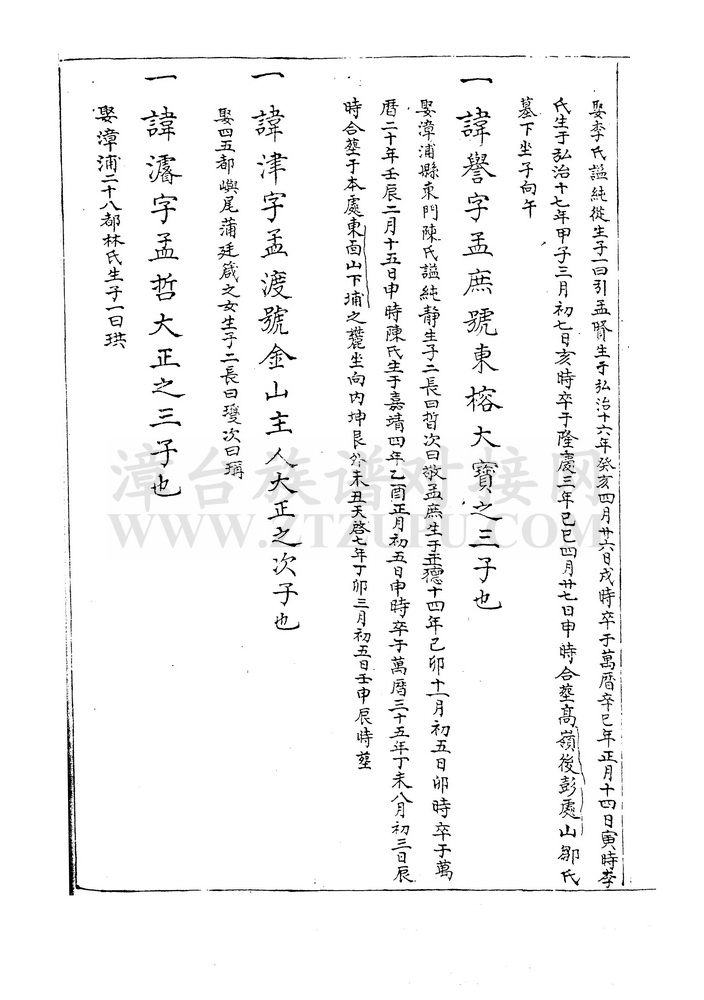 娶李氏謚純㣲生子一曰引孟賢生于弘治十六年癸亥四月廿六日戌時卒于萬曆辛巳年正月十四日寅時李
氏生于弘治十七年甲子三月初七日亥時卒于隆慶三年己巳四月廿七日申時合塟高嶺後彭處山鄒氏
墓下坐子向午
一諱譽字孟庶號東榕大寶之三子也
娶漳浦縣東門陳氏謚純靜生子二長曰哲次曰敬孟庶生于正德十四年己卯十一月初五日卯時卒于萬
曆二十年壬辰二月十五日申時陳氏生于嘉靖四年乙酉正月初五日申時卒于萬曆三十五年丁未八月初三日辰
時合塟于本處東面山下埔之麓坐向丙坤艮分未丑天啓七年丁卯三月初五日壬申辰時塟
一諱津字孟渡號金山主人大正之次子也
娶四五都嶼尾蒲廷箴之女生子二長曰璦次曰瑀
一諱濬字孟哲大正之三子也
娶漳浦二十八都林氏生子一曰珙
漳台族谱对接网
WWW.ZTZUPU.COM